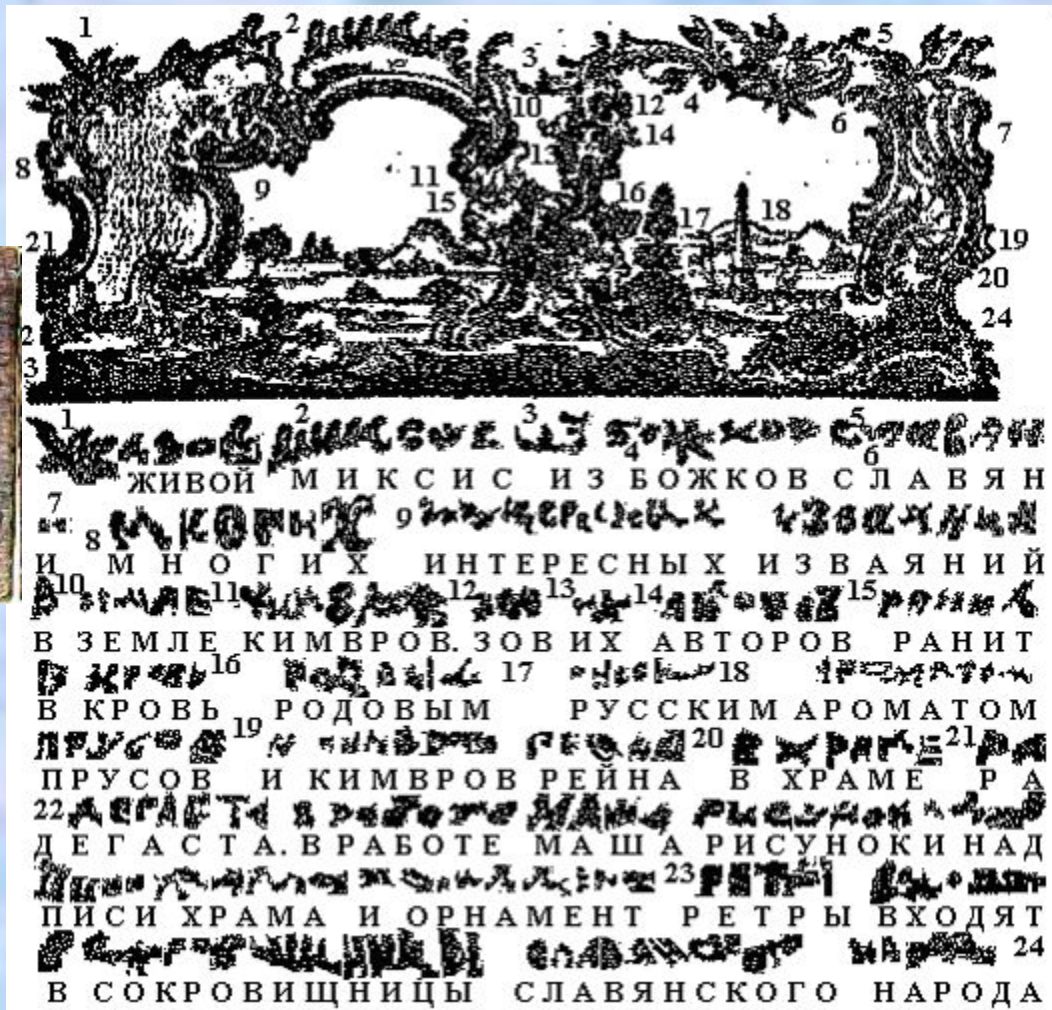 1 2 3 4 5 6 7 8 9 10 11 12 13 14 15 16 17 18 19 20 21 24
2
3
1 2 3 4 5 6
ЖИВОЙ МИКСИС ИЗ БОЖКОВ СЛАВЯН
7 8 9
И МНОГИХ ИНТЕРЕСНЫХ ИЗВАЯНИЙ
10 11 12 13 14 15
В ЗЕМЛЕ КИМВРОВ. ЗОВ ИХ АВТОРОВ РАНИТ
16 17 18
В КРОВЬ РОДОВЫМ РУССКИМ АРОМАТОМ
19 20 21
ПРУСОВ И КИМВРОВ РЕЙНА В ХРАМЕ РА
22
ДЕГАСТА. В РАБОТЕ МАША РИСУНОК И НАД
23
ПИСИ ХРАМА И ОРНАМЕНТ РЕТРЫ ВХОДЯТ
24
В СОКРОВИЩНИЦЫ СЛАВЯНСКОГО НАРОДА